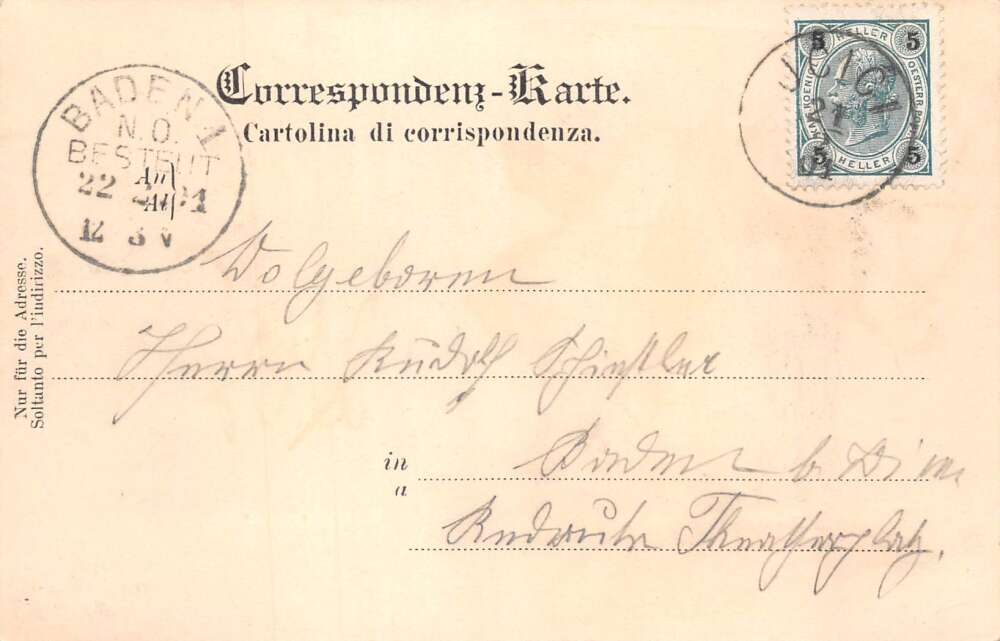 Correspondenz-Karte.
Cartolina di corrispondenza.
BADEN 1
N.O.
BESTELLT
22
12 3 V
5 HELLER 5
5 HELLER 5
21
01
Nur für die Adresse.
Soltanto per l'indirizzo.
Wolgeboren
Herrn Rudolf Schießler
in Baden b Wien
a
Redoute Theatherplatz.